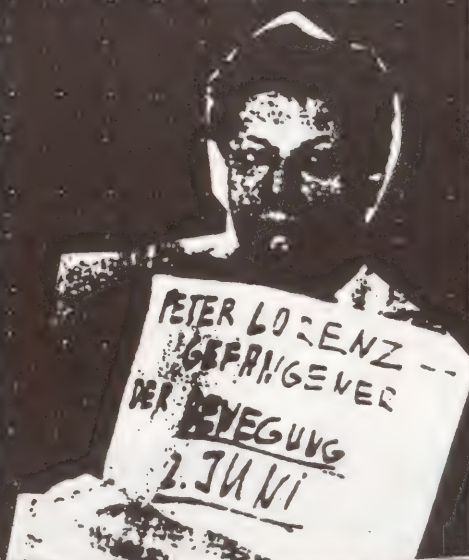 PETER LORENZ
GEFANGENER
DER BEWEGUNG
2. JUNI